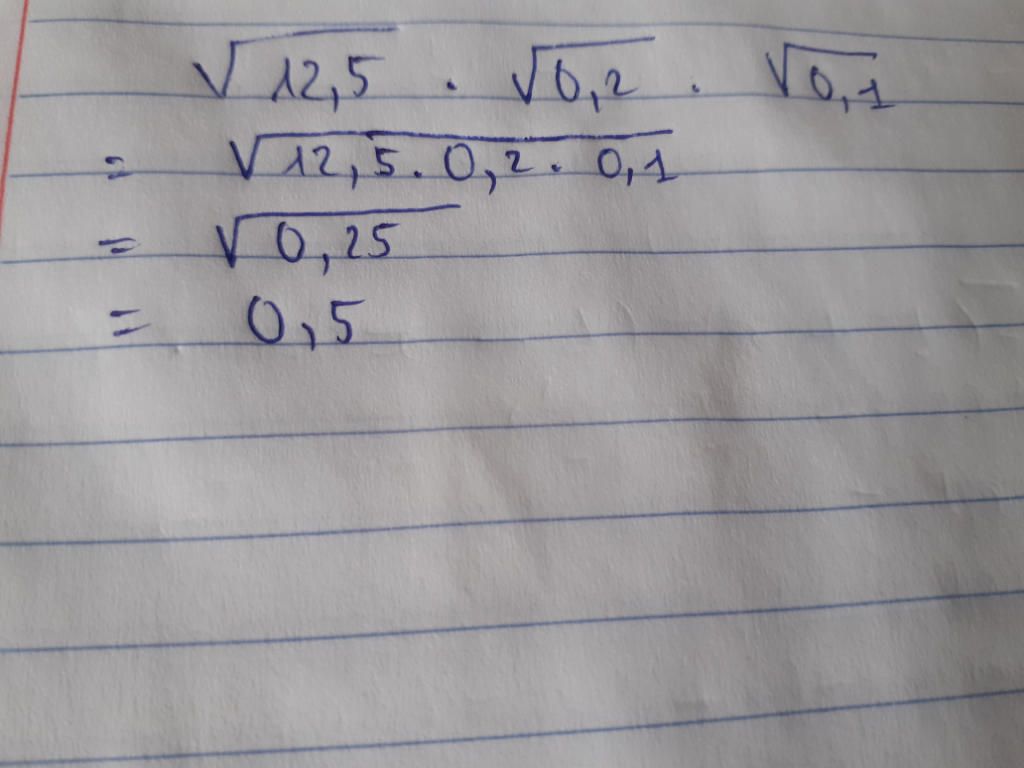 √12,5 . √0,2 . √0,1
= √12,5 . 0,2 . 0,1
= √0,25
= 0,5